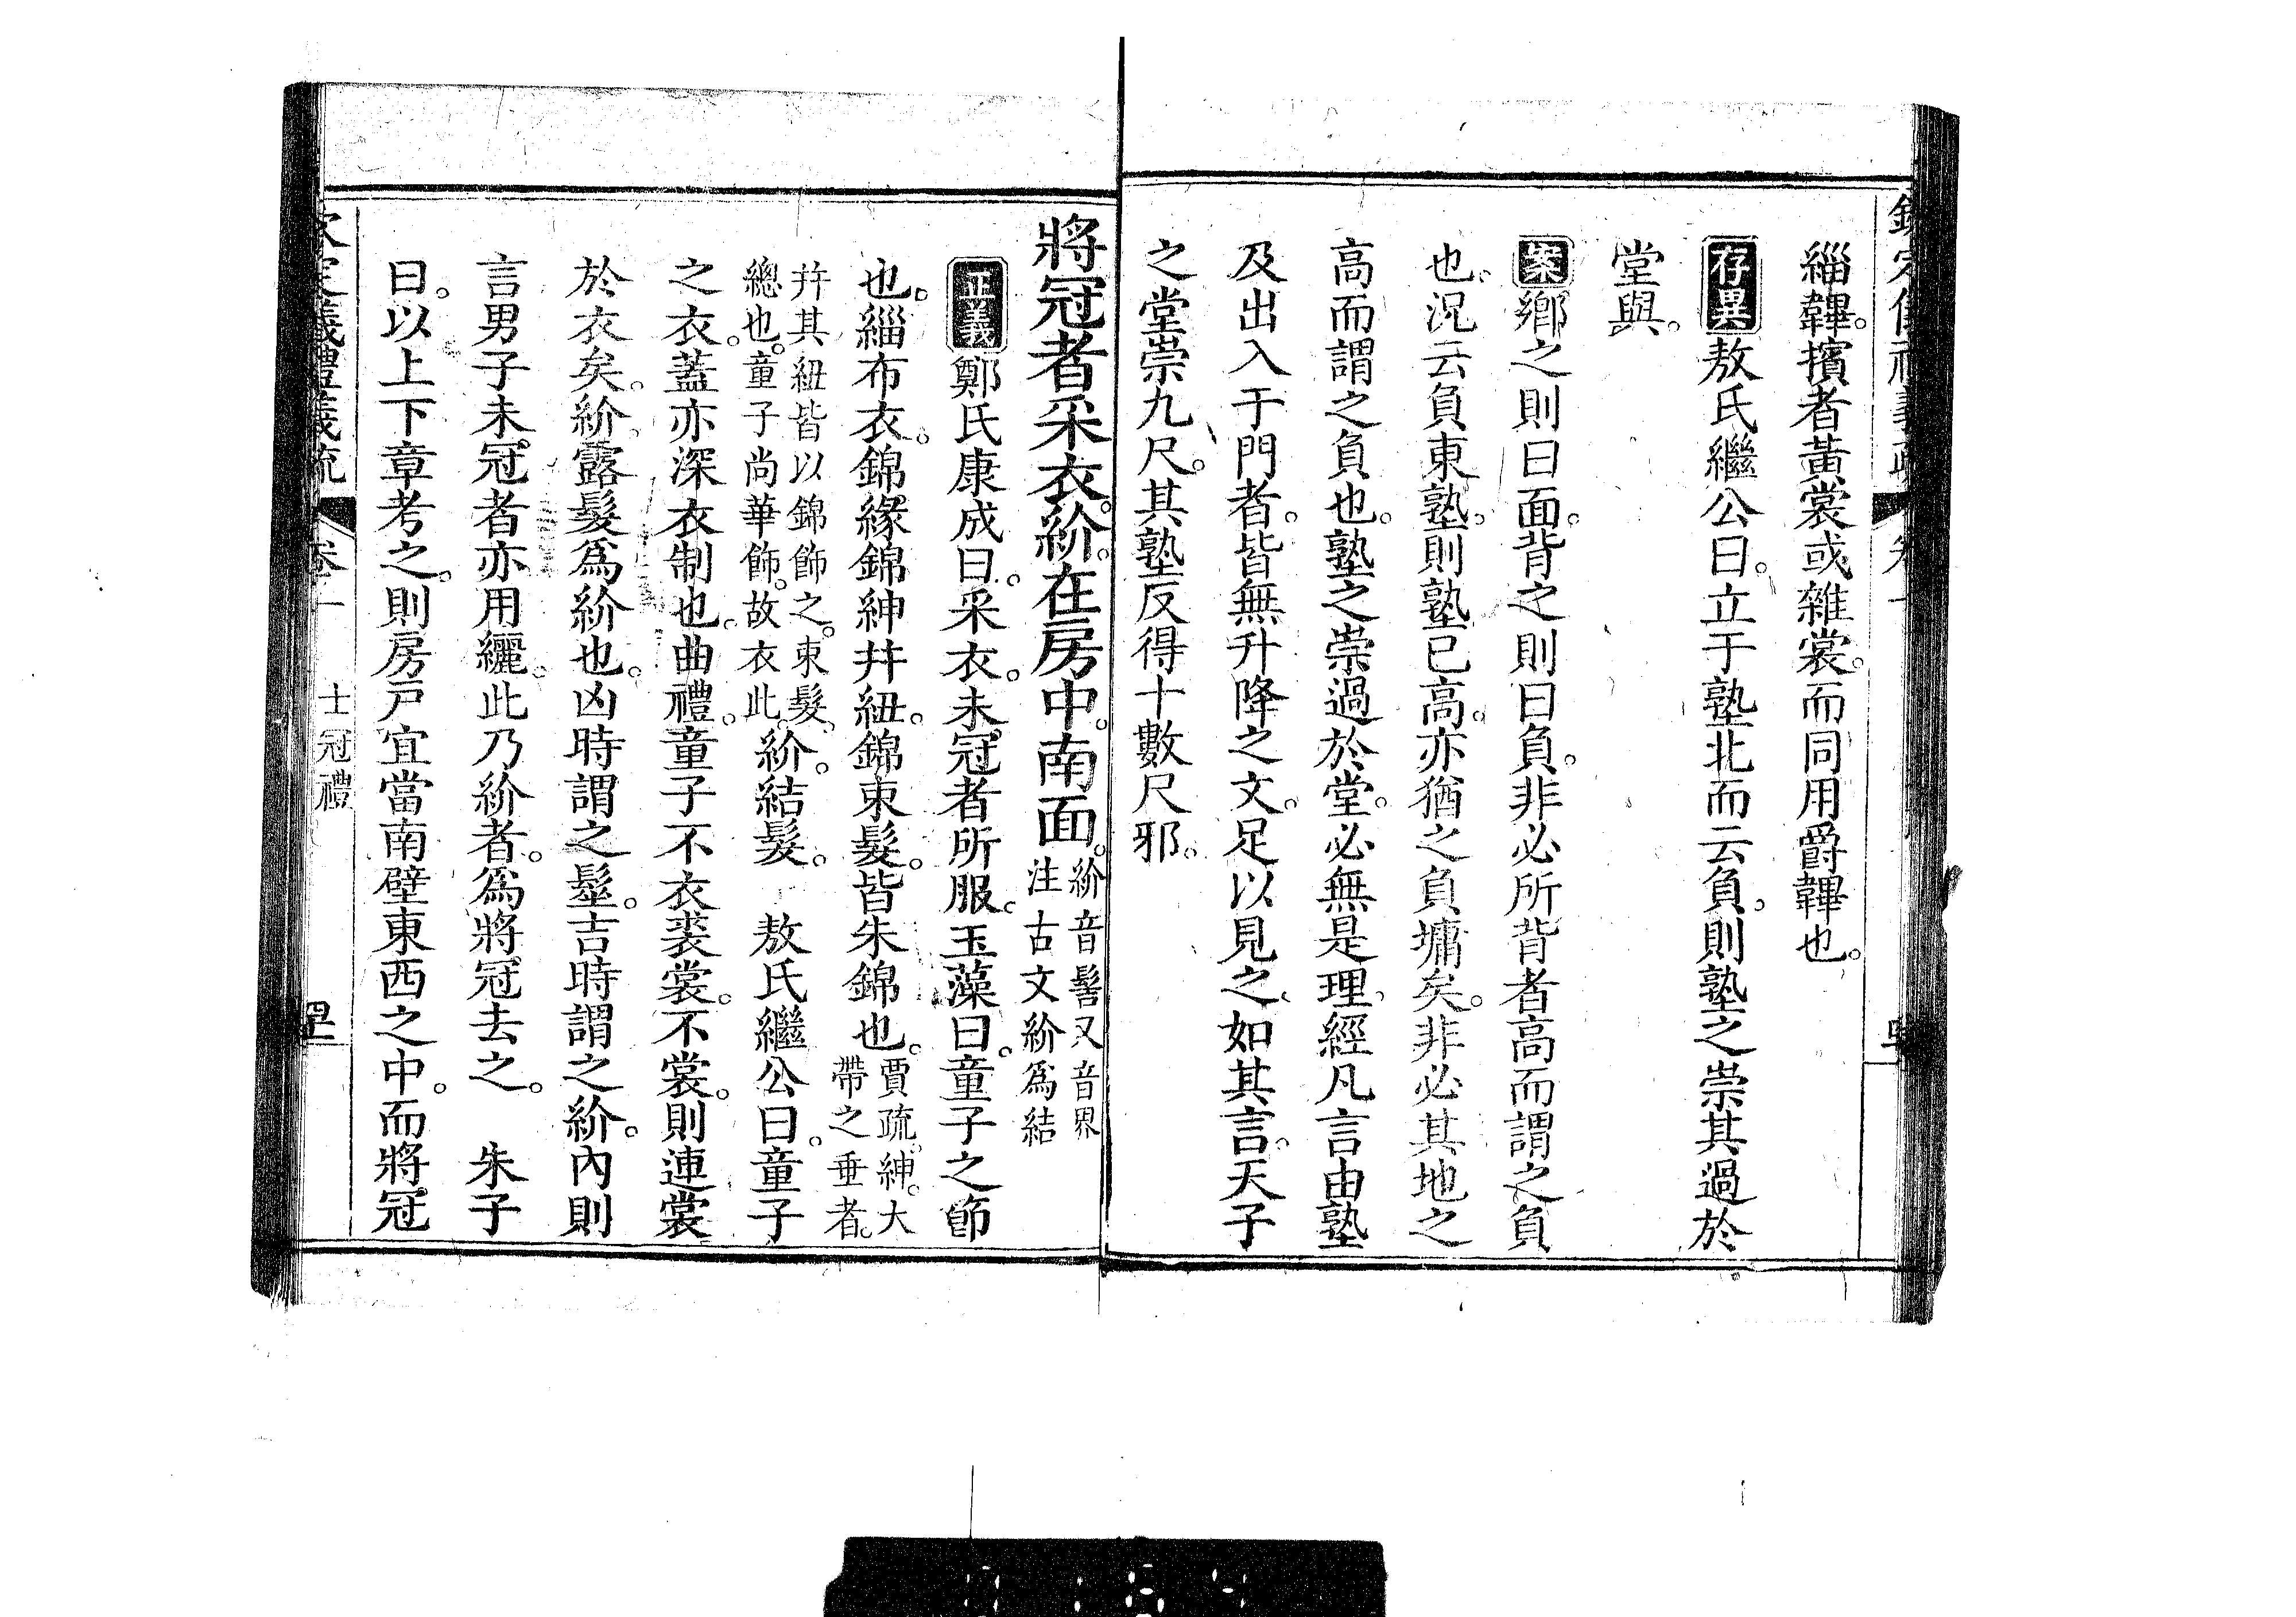 緇韠。擯者黃裳或雜裳。而同用爵韠也。
存異敖氏繼公曰。立于塾北而云負。則塾之崇其過於
堂與。
案鄉之則曰面。背之則曰負。非必所背者高而謂之負
也。況云負東塾。則塾已高。亦猶之負墉矣。非必其地之
高而謂之負也。塾之崇過於堂。必無是理。經凡言由塾
及出入于門者。皆無升降之文。足以見之。如其言。天子
之堂崇九尺。其塾反得十數尺邪。
將冠者采衣。紒。在房中。南面。紒音髻又音界
注古文紒爲結
正義鄭氏康成曰。采衣。未冠者所服。玉藻曰。童子之節
也。緇布衣。錦緣錦紳幷紐。錦束髮。皆朱錦也。賈疏。紳。大
帶之垂者。
幷其紐皆以錦飾之。束髮。
總也。童子尚華飾。故衣此。紒。結髮。 敖氏繼公曰。童子
之衣。蓋亦深衣制也。曲禮。童子不衣裘裳。不裳。則連裳
於衣矣。紒。露髮爲紒也。凶時謂之髽。吉時謂之紒。內則
言男子未冠者亦用纚。此乃紒者。爲將冠去之。 朱子
曰。以上下章考之。則房戶宜當南壁東西之中。而將冠
欽定儀禮義疏 卷一 士冠禮